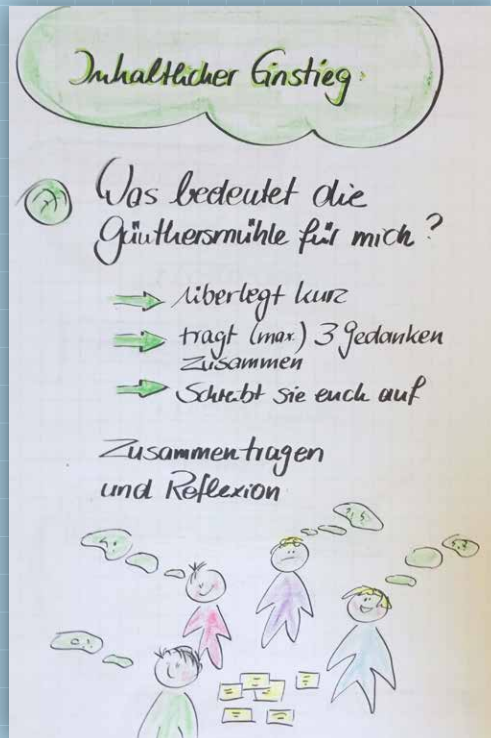 Inhaltlicher Einstieg
Was bedeutet die
Günthersmühle für mich?
überlegt kurz
tragt (max.) 3 Gedanken
zusammen
Schreibt sie euch auf
Zusammentragen
und Reflexion